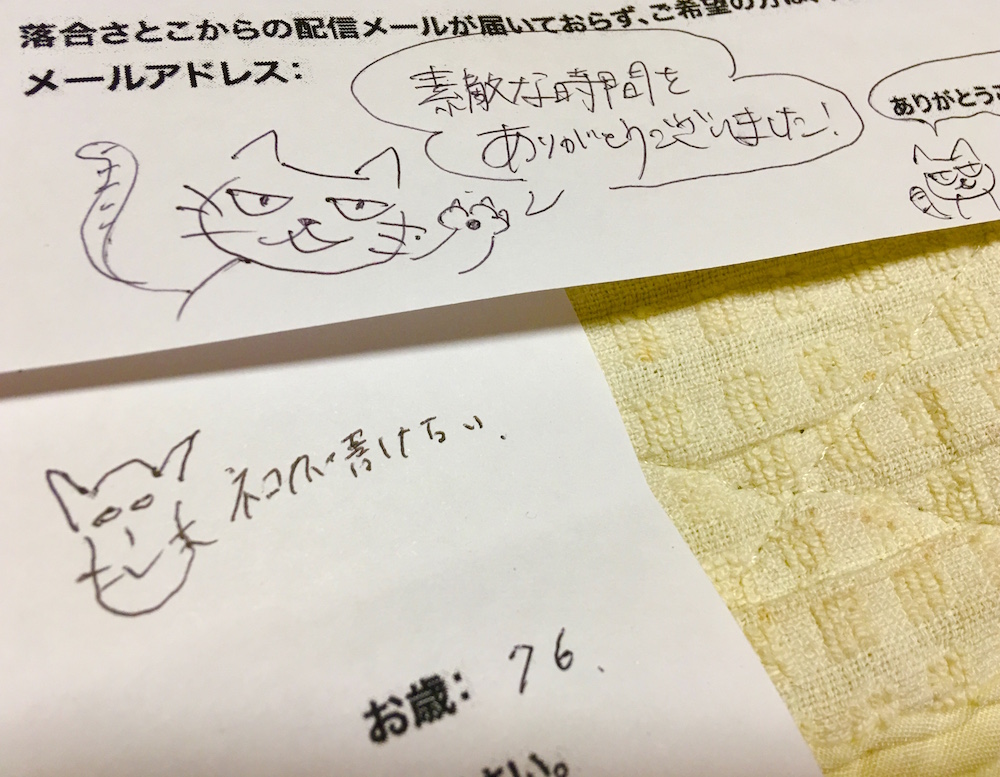 落合さとこからの配信メールが届いておらず、ご希望の方は、
メールアドレス：
素敵な時間を
ありがとうございました！
ありがとうご
ネコが書けない.
お歳： 76.
さい。